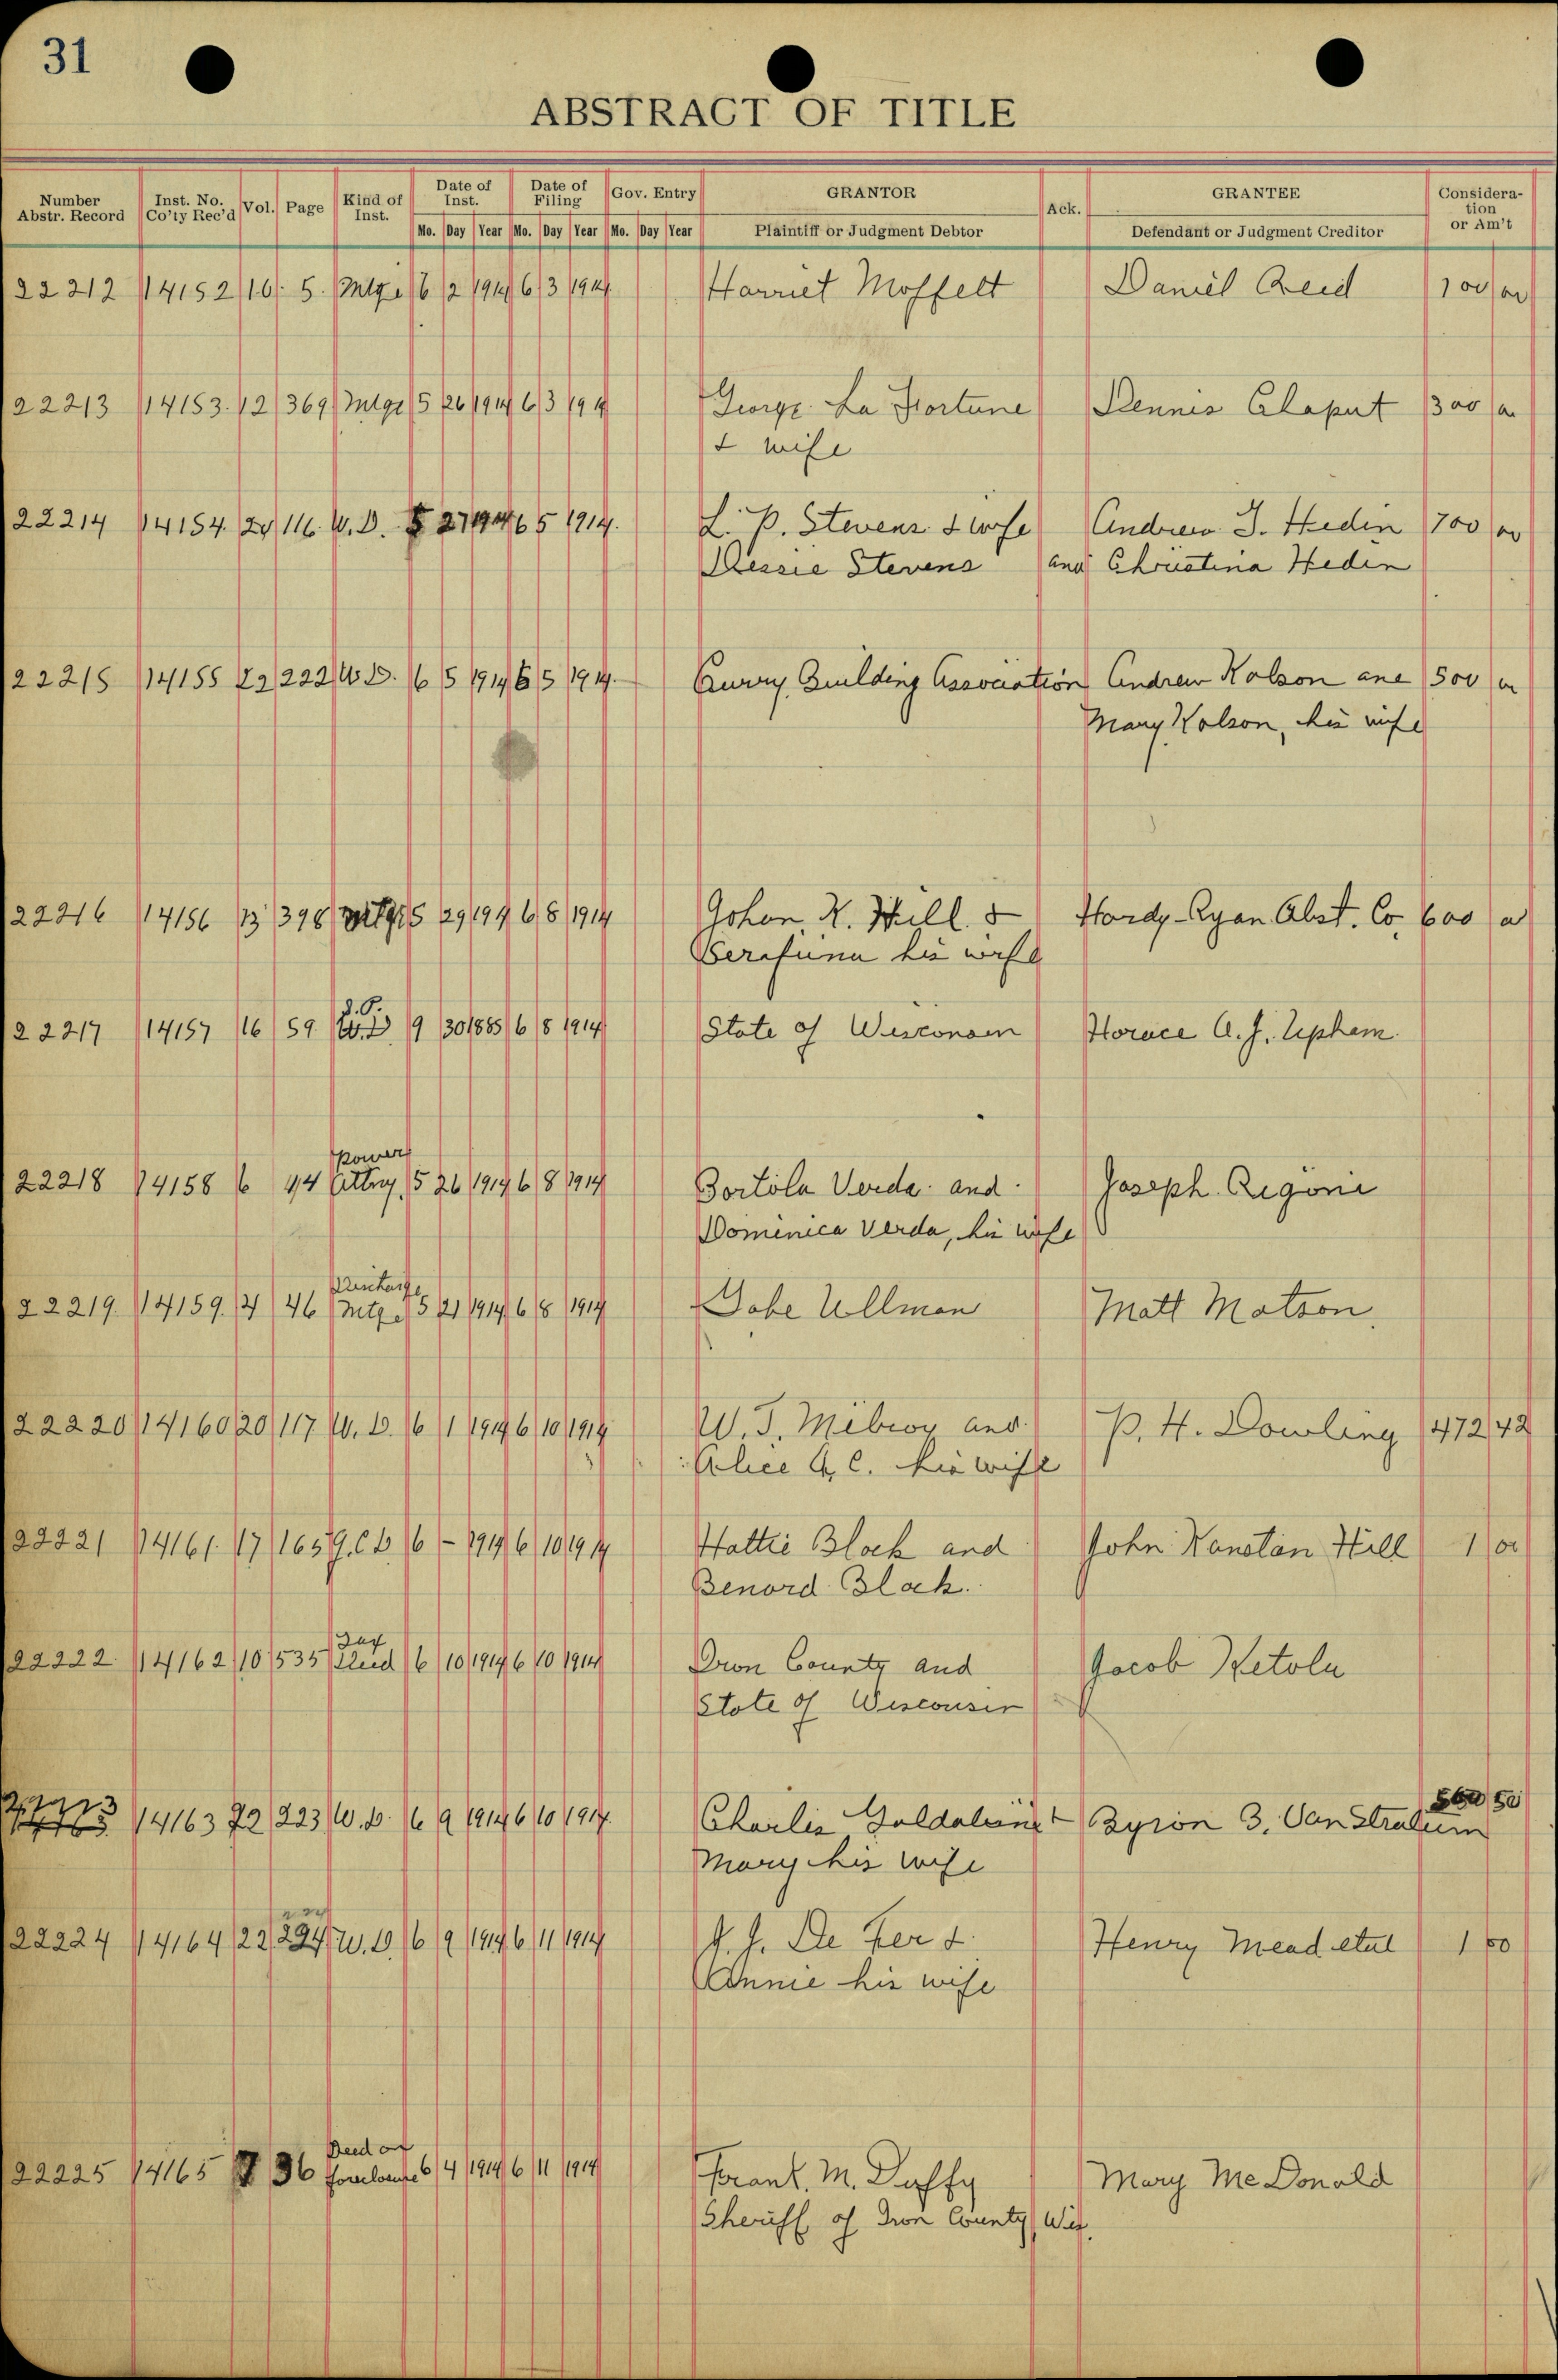 31
ABSTRACT OF TITLE
Number Abstr. Record Inst. No. Co'ty Rec'd Vol. Page Kind of Inst. Date of Inst. Date of Filing Gov. Entry GRANTOR Ack. GRANTEE Considera-tion or Am't
Mo. Day Year Mo. Day Year Mo. Day Year Plaintiff or Judgment Debtor Defendant or Judgment Creditor
22212 14152 16 5 Mtge 6 2 1914 6 3 1914 Harriet Moffett Daniel Reid 100 00
22213 14153 12 369 Mtge 5 26 1914 6 3 1914 George La Fortune Dennis Chaput 300 00
& wife
22214 14154 20 116 W.D. 5 27 1914 6 5 1914 L. P. Stevens & wife Andrew J. Hedin 700 00
Bessie Stevens and Christina Hedin
22215 14155 22 222 W.D. 6 5 1914 6 5 1914 Curry Building Association Andrew Kolson and 500 00
Mary Kolson, his wife
22216 14156 13 398 Mtge 5 29 1914 6 8 1914 John K. Hill & Hardy-Ryan Abst. Co. 600 00
his wife
22217 14157 16 59 S.P. W.D. 9 30 1885 6 8 1914 State of Wisconsin Horace A. J. Upham
22218 14158 6 44 Power Attny. 5 26 1914 6 8 1914 Bortola Verda and Joseph Rigoni
Dominica Verda, his wife
22219 14159 4 46 Discharge Mtge 5 21 1914 6 8 1914 Gabe Ullman Matt Matson
22220 14160 20 117 W.D. 6 1 1914 6 10 1914 W. J. and P. H. Dowling 472 42
Alice A. C. his wife
22221 14161 17 165 Q.C.D. 6 - 1914 6 10 1914 Hattie Block and John Hill 1 00
Benord Block.
22222 14162 10 535 Tax Deed 6 10 1914 6 10 1914 Iron County and Jacob Ketola
State of Wisconsin
14163 22 223 W.D. 6 9 1914 6 10 1914 Charlie & Byron 3. Van Stratum 560 50
Mary his wife
22224 14164 22 224 W.D. 6 9 1914 6 11 1914 J. De & Henry Mead etal 1 00
Annie his wife
22225 14165 7 36 Deed on foreclosure 6 4 1914 6 11 1914 Frank. M. Duffy Mary McDonald
Sheriff of Iron County Wis.